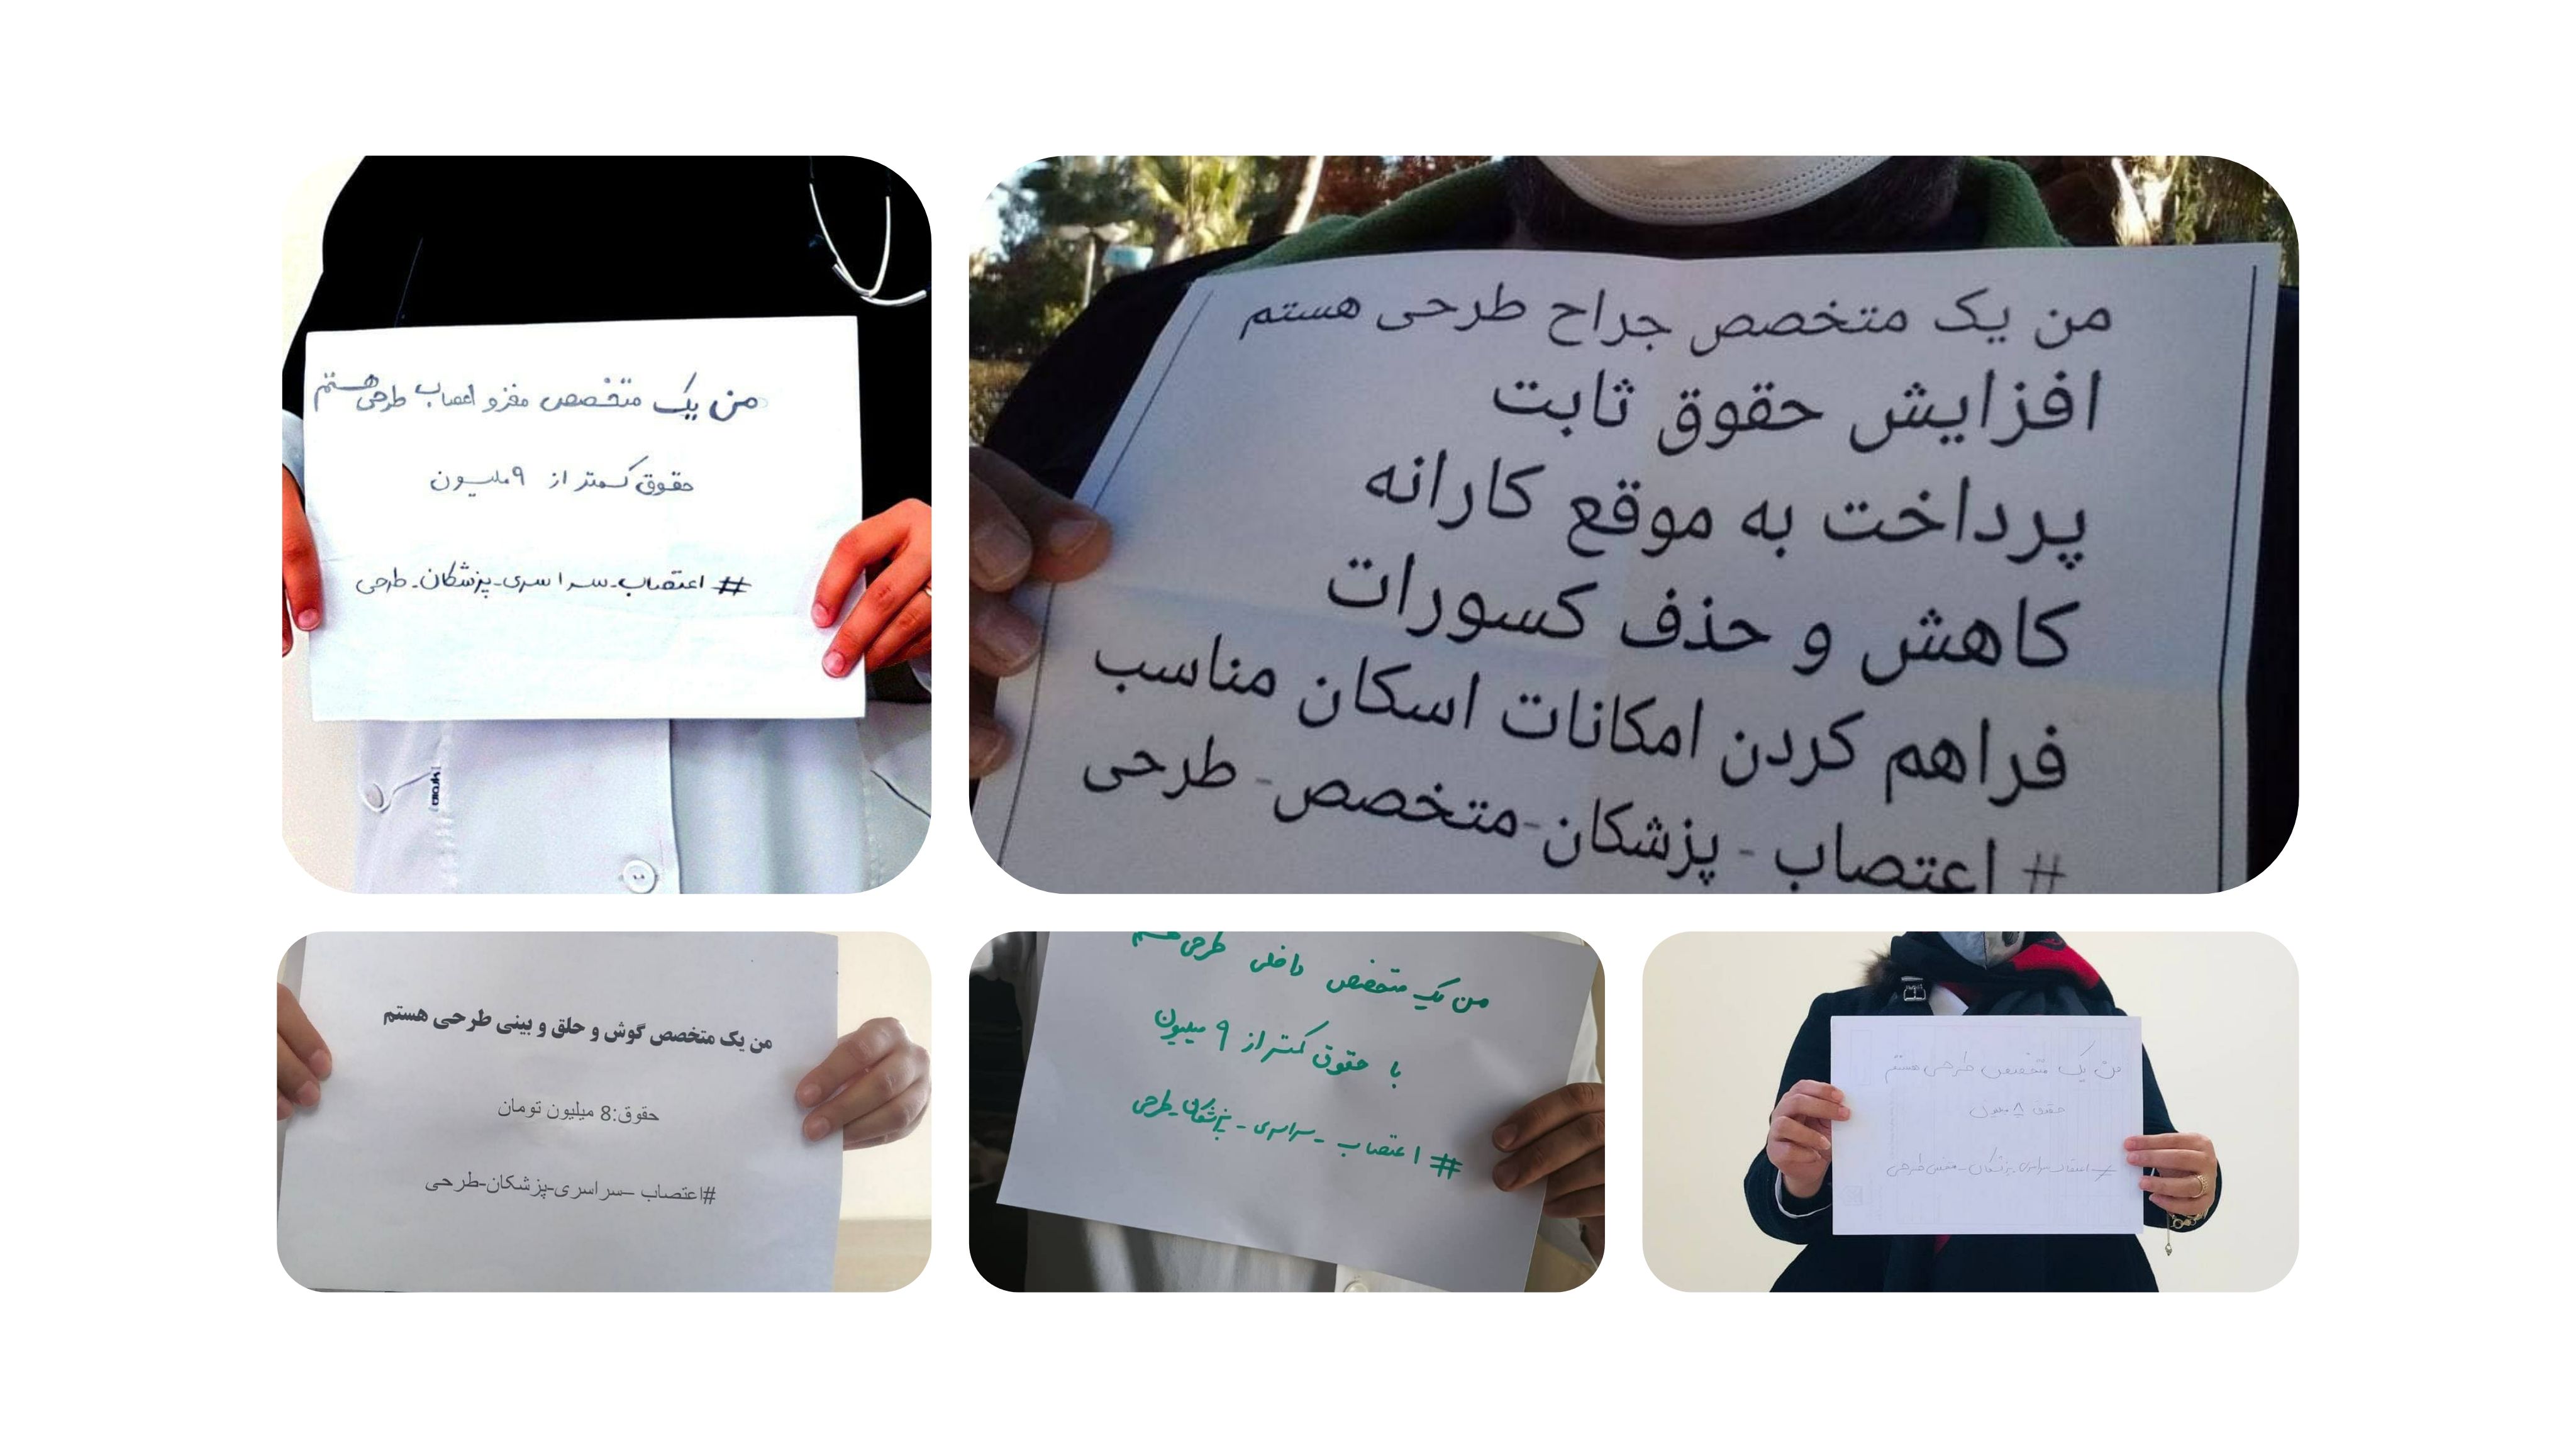 من یک متخصص مغز و اعصاب طرحی هستم
حقوق کمتر از ۹ ملیون
# اعتصاب_سراسری_پزشکان_طرحی
من یک متخصص جراح طرحی هستم
افزایش حقوق ثابت
پرداخت به موقع کارانه
کاهش و حذف کسورات
فراهم کردن امکانات اسکان مناسب
# اعتصاب - پزشکان-متخصص- طرحی
من یک متخصص گوش و حلق و بینی طرحی هستم
حقوق:8 میلیون تومان
#اعتصاب –سراسری-پزشکان-طرحی
من یک متخصص داخلی طرحی هستم
با حقوق کمتر از ۹ میلیون
# اعتصاب - سراسری - پزشکان - طرحی
من یک متخصص طرحی هستم
حقوق ۸ میلیون